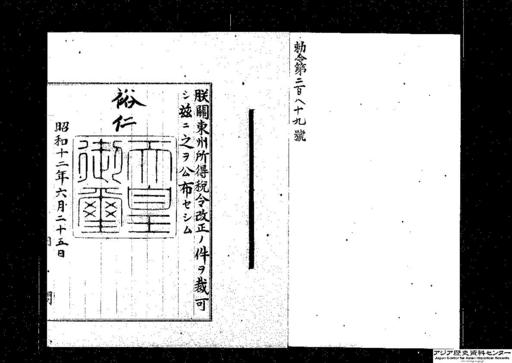 勅令第二百八十九號
朕關東州所得税令改正ノ件ヲ裁可
シ茲ニ之ヲ公布セシム
裕仁
天皇
御璽
昭和十二年六月二十五日
アジア歴史資料センター
Japan Center for Asian Historical Records